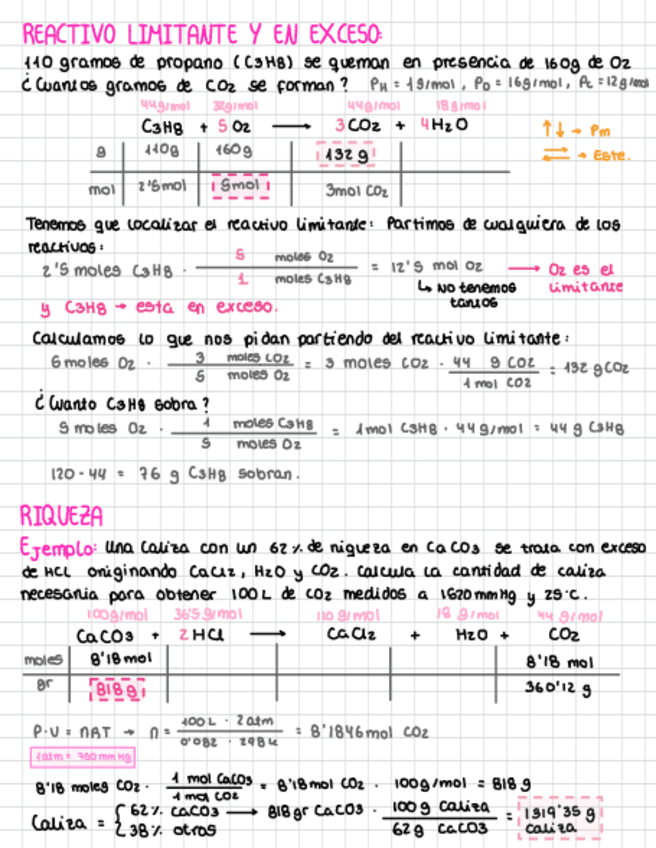 REACTIVO LIMITANTE Y EN EXCESO:
110 gramos de propano (C3H8) se queman en presencia de 160g de O2
¿Cuantos gramos de CO2 se forman? PH = 1g/mol, PO = 16g/mol, PC = 12g/mol
44g/mol 32g/mol 44g/mol 18g/mol
C3H8 + 5O2 → 3CO2 + 4H2O ↑↓ → Pm
g 110g 160g 132 g ⇄ → Este.
mol 2'5mol 5mol 3mol CO2
Tenemos que localizar el reactivo limitante: Partimos de cualquiera de los
reactivos:
2'5 moles C3H8 · 5 moles O2 / 1 moles C3H8 = 12'5 mol O2 → O2 es el
↳ No tenemos limitante
y C3H8 → esta en exceso. tantos
Calculamos lo que nos pidan partiendo del reactivo limitante:
5 moles O2 · 3 moles CO2 / 5 moles O2 = 3 moles CO2 · 44 g CO2 / 1 mol CO2 = 132 gCO2
¿Cuanto C3H8 sobra?
5 moles O2 · 1 moles C3H8 / 5 moles O2 = 1mol C3H8 · 44g/mol = 44 g C3H8
120 - 44 = 76 g C3H8 sobran.
RIQUEZA
Ejemplo: Una Caliza con un 62% de riqueza en CaCO3 se trata con exceso
de HCL originando CaCl2, H2O y CO2. Calcula la cantidad de caliza
necesaria para obtener 100L de CO2 medidos a 1520mmHg y 25°C.
100g/mol 36'5g/mol 110g/mol 18g/mol 44g/mol
CaCO3 + 2HCl → CaCl2 + H2O + CO2
moles 8'18mol 8'18 mol
gr 818g 360'12 g
P·V = nRT → n = 100L · 2atm / 0'082 · 298k = 8'1846mol CO2
1atm = 760mmHg
8'18 moles CO2 · 1 mol CaCO3 / 1 mol CO2 = 8'18mol CO2 · 100g/mol = 818g
Caliza = { 62% CaCO3 → 818gr CaCO3 · 100g Caliza / 62g CaCO3 = 1319'35 g
38% otros caliza